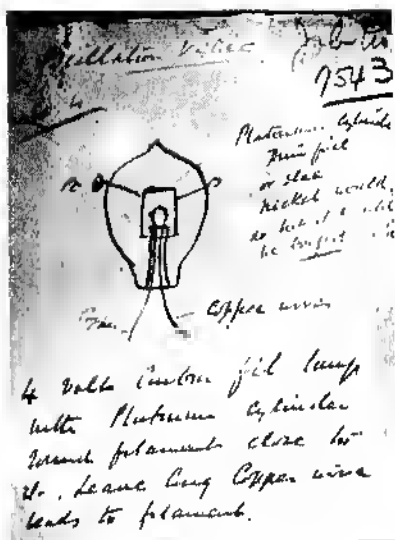 Oscillation Valve
7543
4
Platinum Cylinder
Thin foil
or else
nickel would
do but it
be longest
Copper wires
4 volt Carbon fil lamp
with Platinum Cylinder
round filament close to
it. Leave long Copper wire
leads to filament.